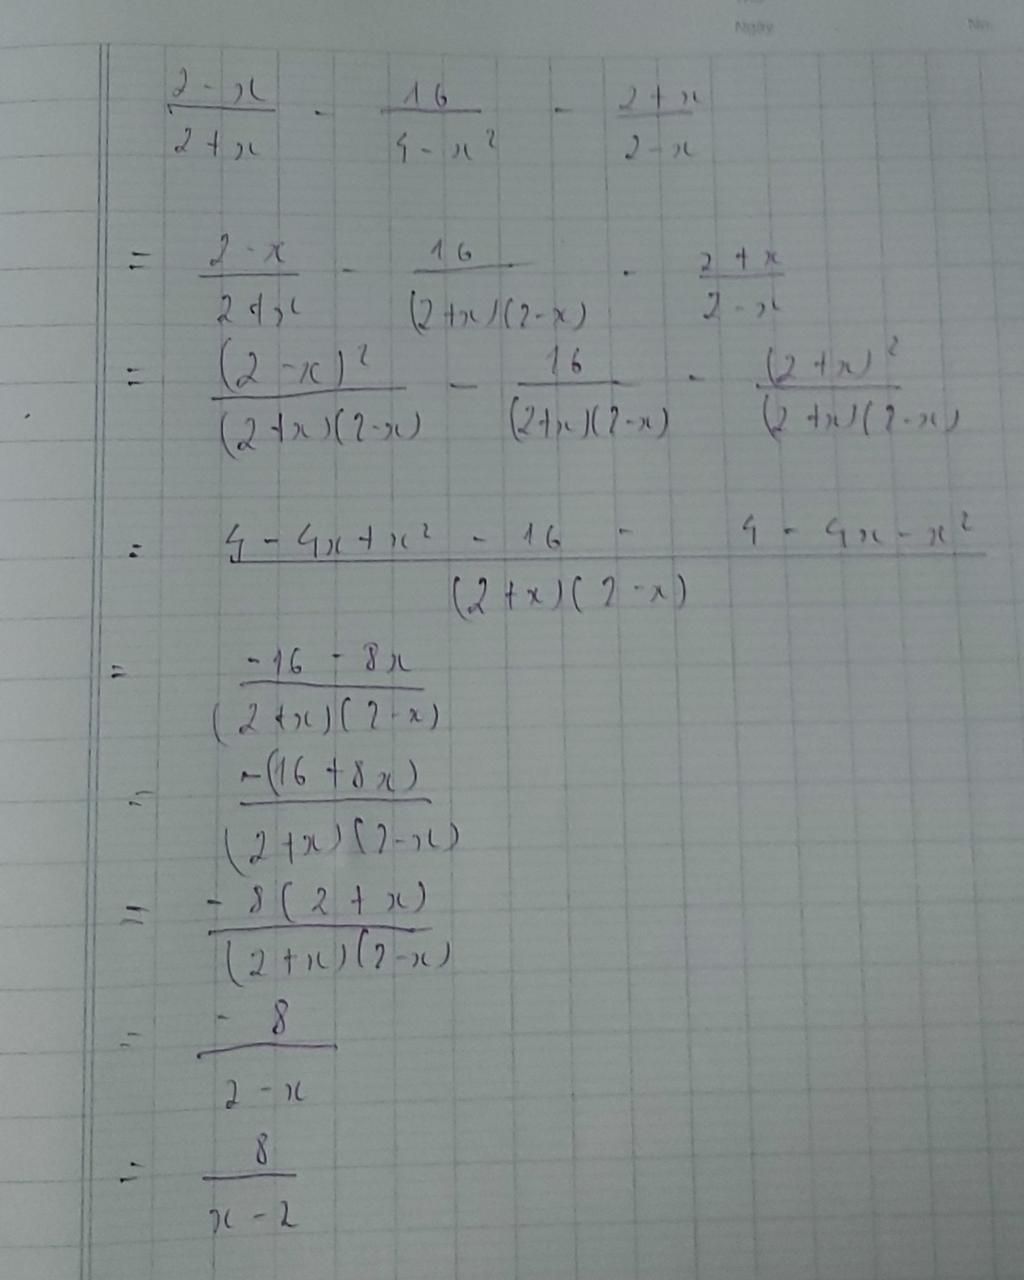 Ngày No.
(2 - x)/(2 + x) - 16/(4 - x²) - (2 + x)/(2 - x)
= (2 - x)/(2 + x) - 16/((2 + x)(2 - x)) - (2 + x)/(2 - x)
= (2 - x)²/((2 + x)(2 - x)) - 16/((2 + x)(2 - x)) - (2 + x)²/((2 + x)(2 - x))
= (4 - 4x + x² - 16 - 4 - 4x - x²)/((2 + x)(2 - x))
= (-16 - 8x)/((2 + x)(2 - x))
= -(16 + 8x)/((2 + x)(2 - x))
= -8(2 + x)/((2 + x)(2 - x))
= -8/(2 - x)
= 8/(x - 2)